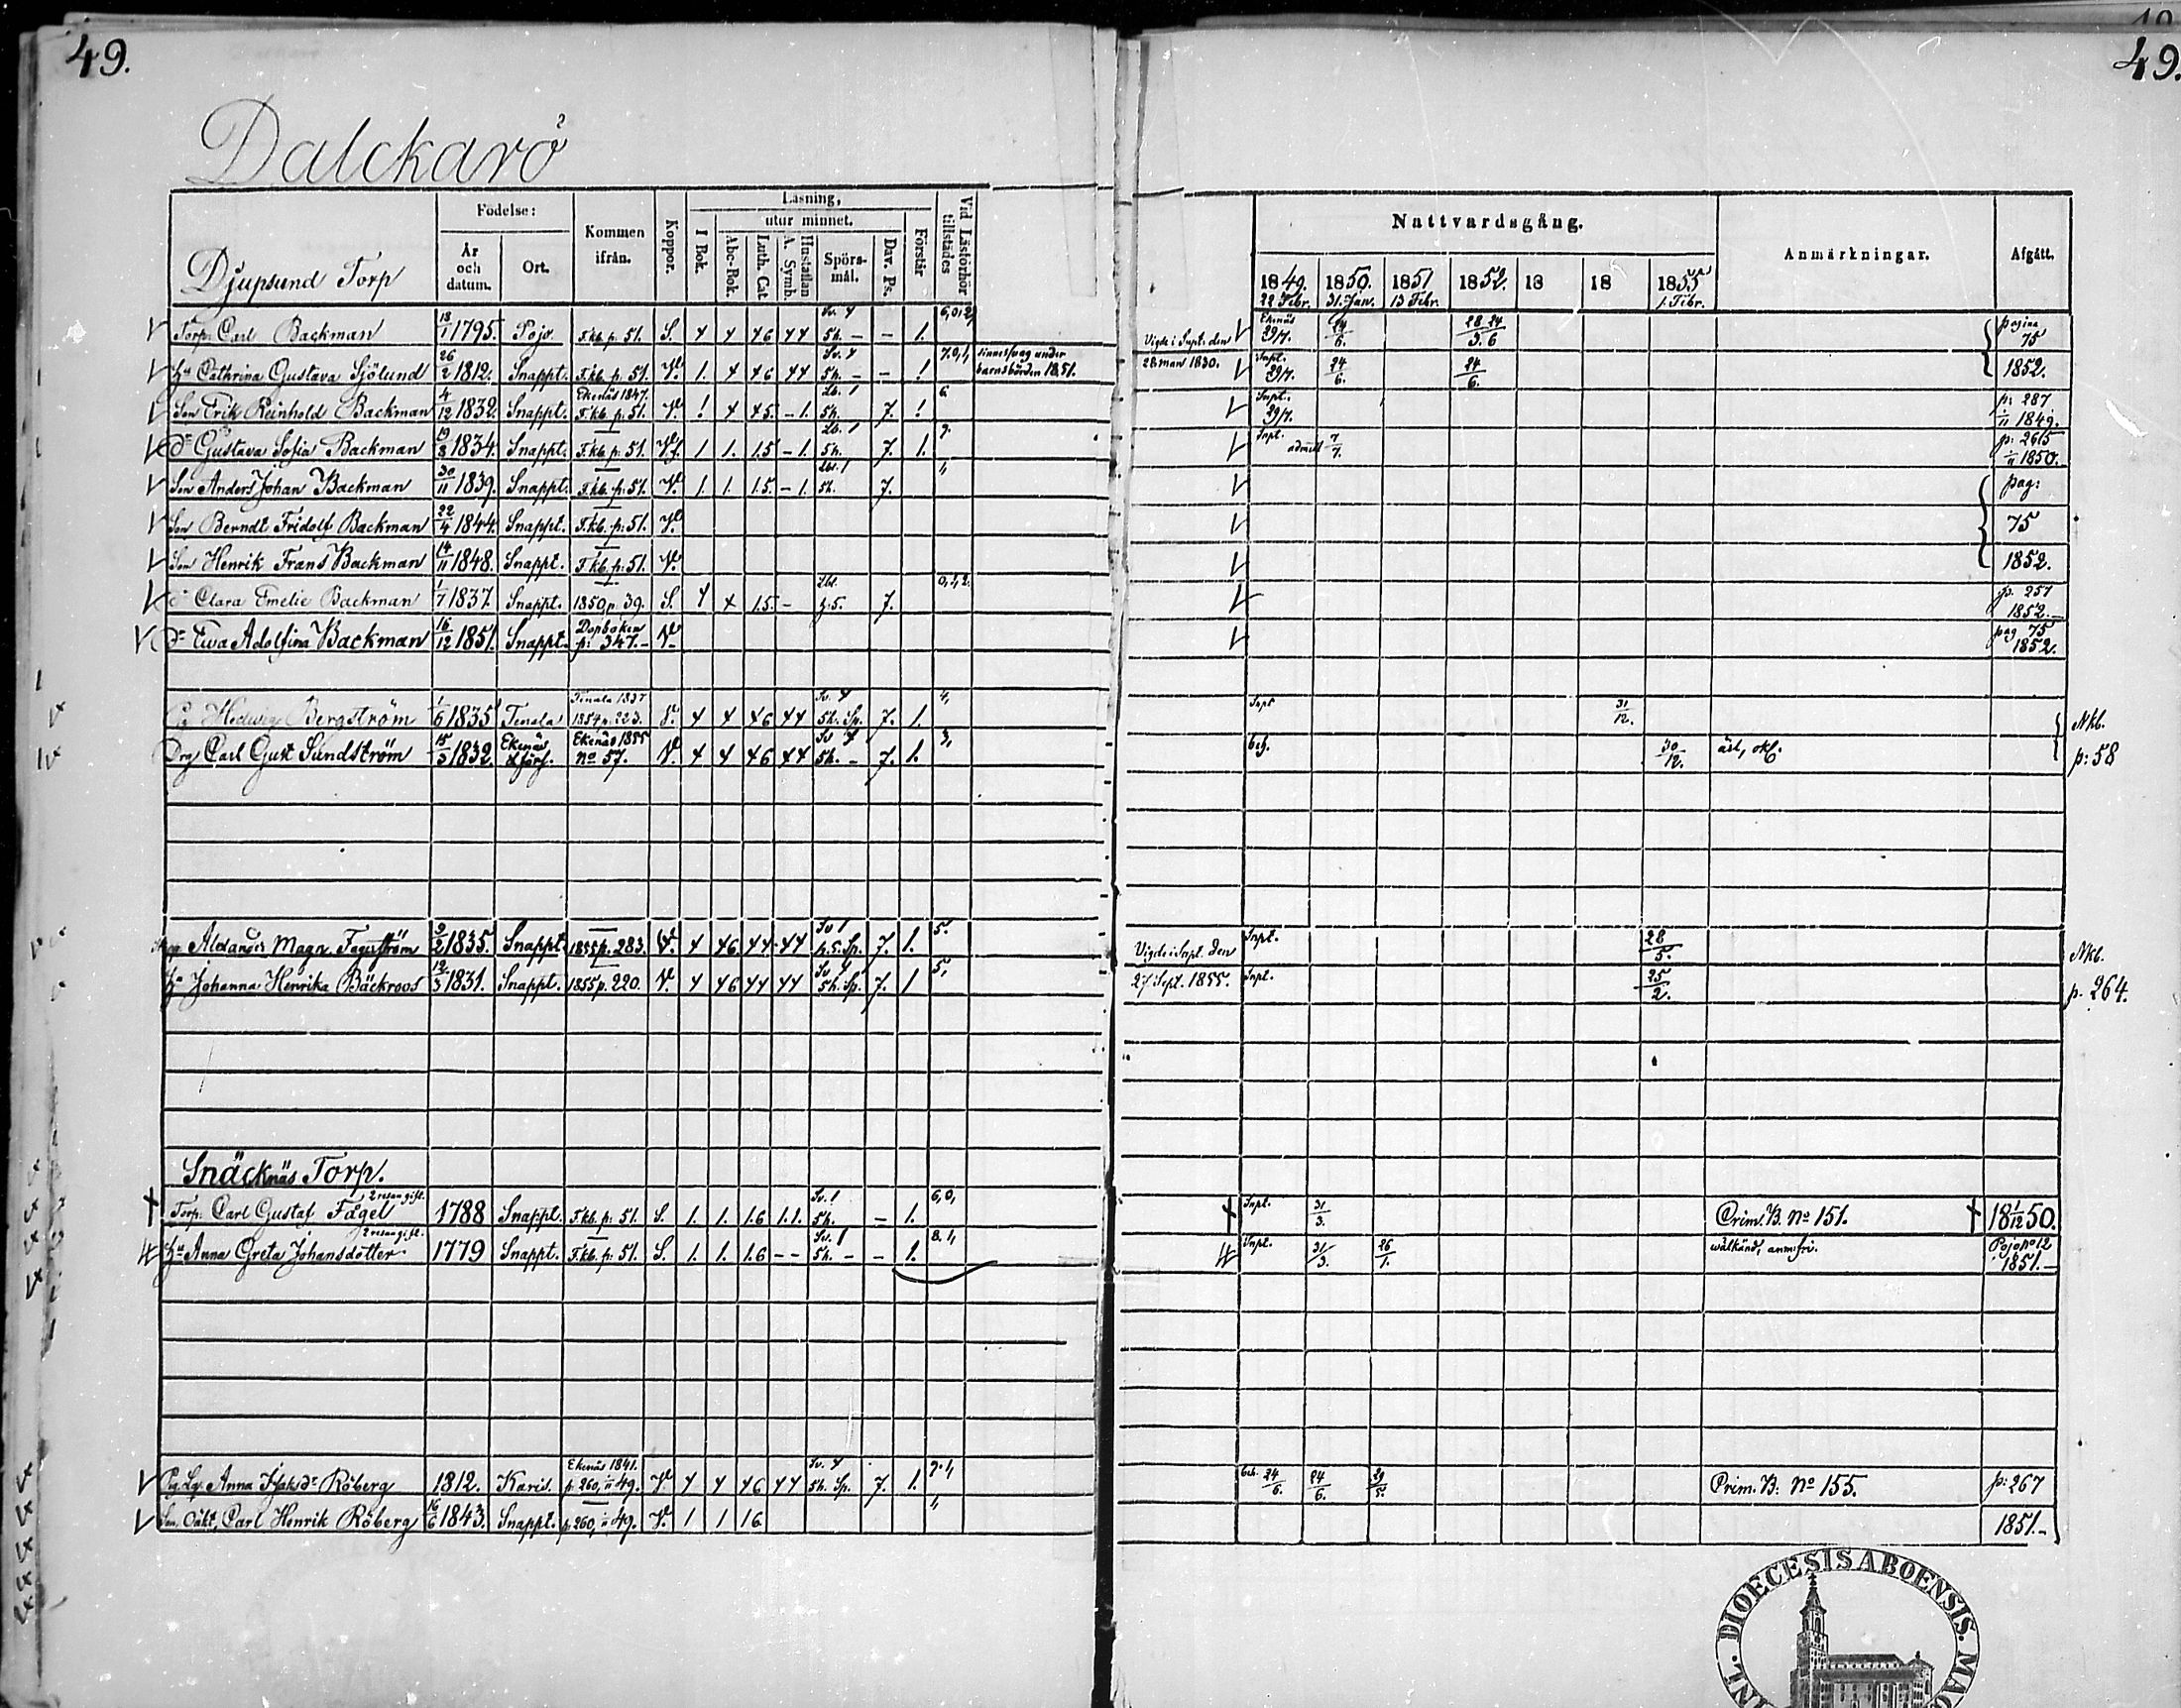 49.
49.
Dalckarö
Djupsund Torp
Födelse:
År och datum.
Ort.
Kommen ifrån.
Koppor.
Läsning,
utur minnet.
I Bok.
Abc-Bok.
Luth. Cat.
Hustaflan A. Symb.
Spörs-mål.
Dav. Ps.
Förstår
Vid Läsförhör tillstädes
Nattvardsgång.
1849. 22 Febr.
1850. 31. Jan.
1851 13 Febr.
1852.
18
18
1855 1. Febr.
Anmärkningar.
Afgått.
Torp. Carl Backman 18/1 1795. Pojo F.kb. p. 51. S. 4 4 46 44 Sv. 4 5h. – – 1. Vigde i Snpt. den Ekenäs 29/7. 24/6. 28 24/3. 6 pagina 75
Hu Cathrina Gustava Sjölund 26/2 1812. Snappt. F.kb. p. 51. V. 1. 4 46 44 Sv. 4 5h. – – 1 sinnessvag under barnsbörden 1851. 28 mars 1830. Snpt. 29/7. 24/6. 24/6. 1852.
Son Erik Reinhold Backman 4/12 1832. Snappt. Ekenäs 1847. F.kb. p. 51. V. 1 4 45. – 1. Lb. 1 5h. 7. 1 6 Snpt. 29/7. p: 287 1/11 1849.
Dr Gustava Sofia Backman 19/8 1834. Snappt. F.kb. p. 51. 1 1. 1.5 – 1. Lb. 1 5h. 7. 1. 9. Snpt. admitt 7/7. p: 265 1/11 1850.
Son Anders Johan Backman 30/11 1839. Snappt. F.kb. p: 51. V. 1. 1. 1.5. – 1. 5h. 7. pag:
Son Berndt Fridolf Backman 22/4 1844. Snappt. F.kb. p: 51. V. 75
Son Henrik Frans Backman 14/11 1848. Snappt. F.kb. p: 51. V. 1852.
Dr Clara Emelie Backman 1/7 1837. Snappt. 1850 p. 39. S. 4 4 1.5. – 7. p. 257 1852.
Dr Ewa Adolfina Backman 16/12 1851. Snappt. Dopboken p: 347. V. pag 75 1852.
Pg Hedwig Bergström 1/6 1835 Tenala Tenala 1837 1854 p. 223. V. 4 4 46 44 Sv. 4 5h. Sp. 7. 1. 4, Snpt 31/12. Nkb.
Drg Carl Gust Sundström 15/3 1832. Ekenäs Ekenäs 1855 no 57. V. 4 4 46 44 Sv 4 5h. – 7. 1. 3, 30/12. p: 58
Alexander Magn. Fagerström 9/2 1835. Snappt. 1855 p. 283. V. 4 46 44 44 Sv 1 7. 1. 5. Vigde i Snpt. den Snpt. 28/5. Nkb.
Hu Johanna Henrika Bäckroos 12/3 1831. Snappt. 1855 p. 220. V. 4 46 44 44 Sv 4 5h. Sp. 7. 1 5, 27 Sept. 1855. Snpt. 25/2. p. 264.
Snäcknäs Torp.
Torp. Carl Gustaf Fågel 2 resan gift. 1788 Snappt. F.kb. p: 51. S. 1. 1. 1.6 1.1. Sv. 1 5h. – 1. 6,0, Snpt. 31/3. Prim. B. No 151. 18 1/12 50.
Hu Anna Greta Johansdotter 2 resan gift. 1779 Snappt. F.kb. p: 51. S. 1. 1. 1.6 – – Sv. 1 5h. – – 1. 8. 1, Snpt. 31/3. 26/1. wälkänd, Pojo No 12 1851.
Anna Röberg 1812. Karis. Ekenäs 1841. p. 260, 49. V 4 4 46 44 Sv. 4 5h. Sp. 7. 1. 24/6. 24/6. 29/5. Prim. B. No 155. p: 267
Son Carl Henrik Röberg 16/6 1843. Snappt. p. 260, 49. V. 1 1 16 1851.
DIOECESIS ABOENSIS.